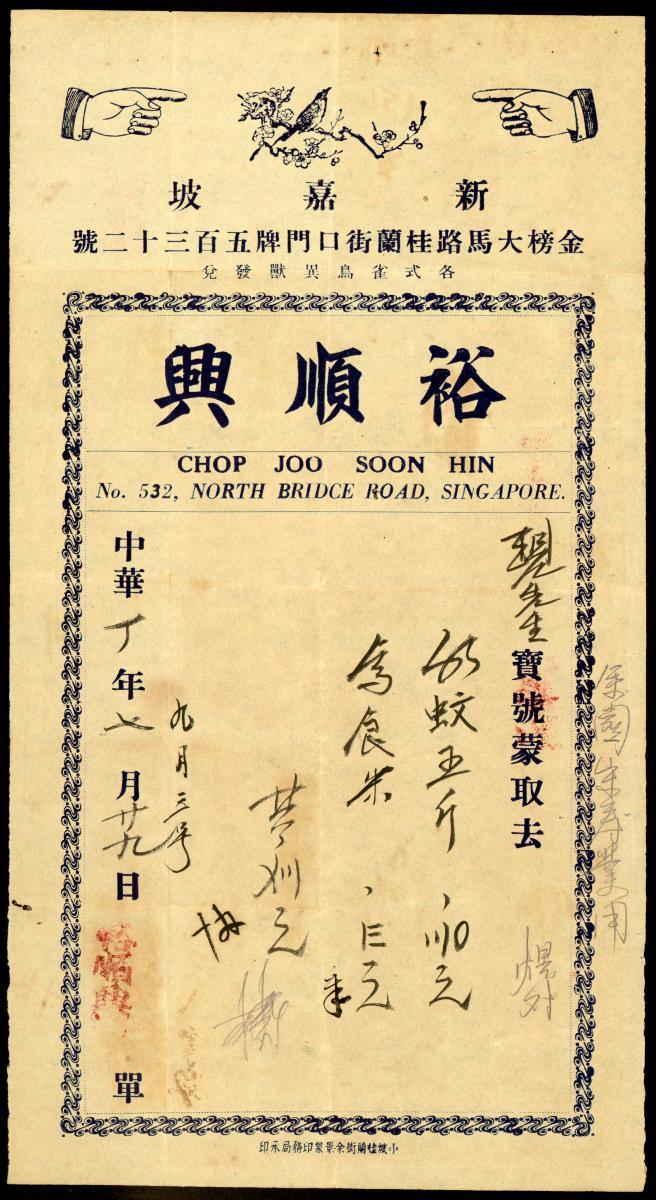 新嘉坡
金榜大馬路桂蘭街口門牌五百三十二號
各式雀鳥異獸發兌
裕順興
CHOP JOO SOON HIN
No. 532, NORTH BRIDGE ROAD, SINGAPORE.
先生寶號蒙取去
蚊五斤 〣〇元
鳥食米 元
共 元
九月三号
中華丁年七月廿九日 單
裕順興
小坡桂蘭街余景製印務局承印